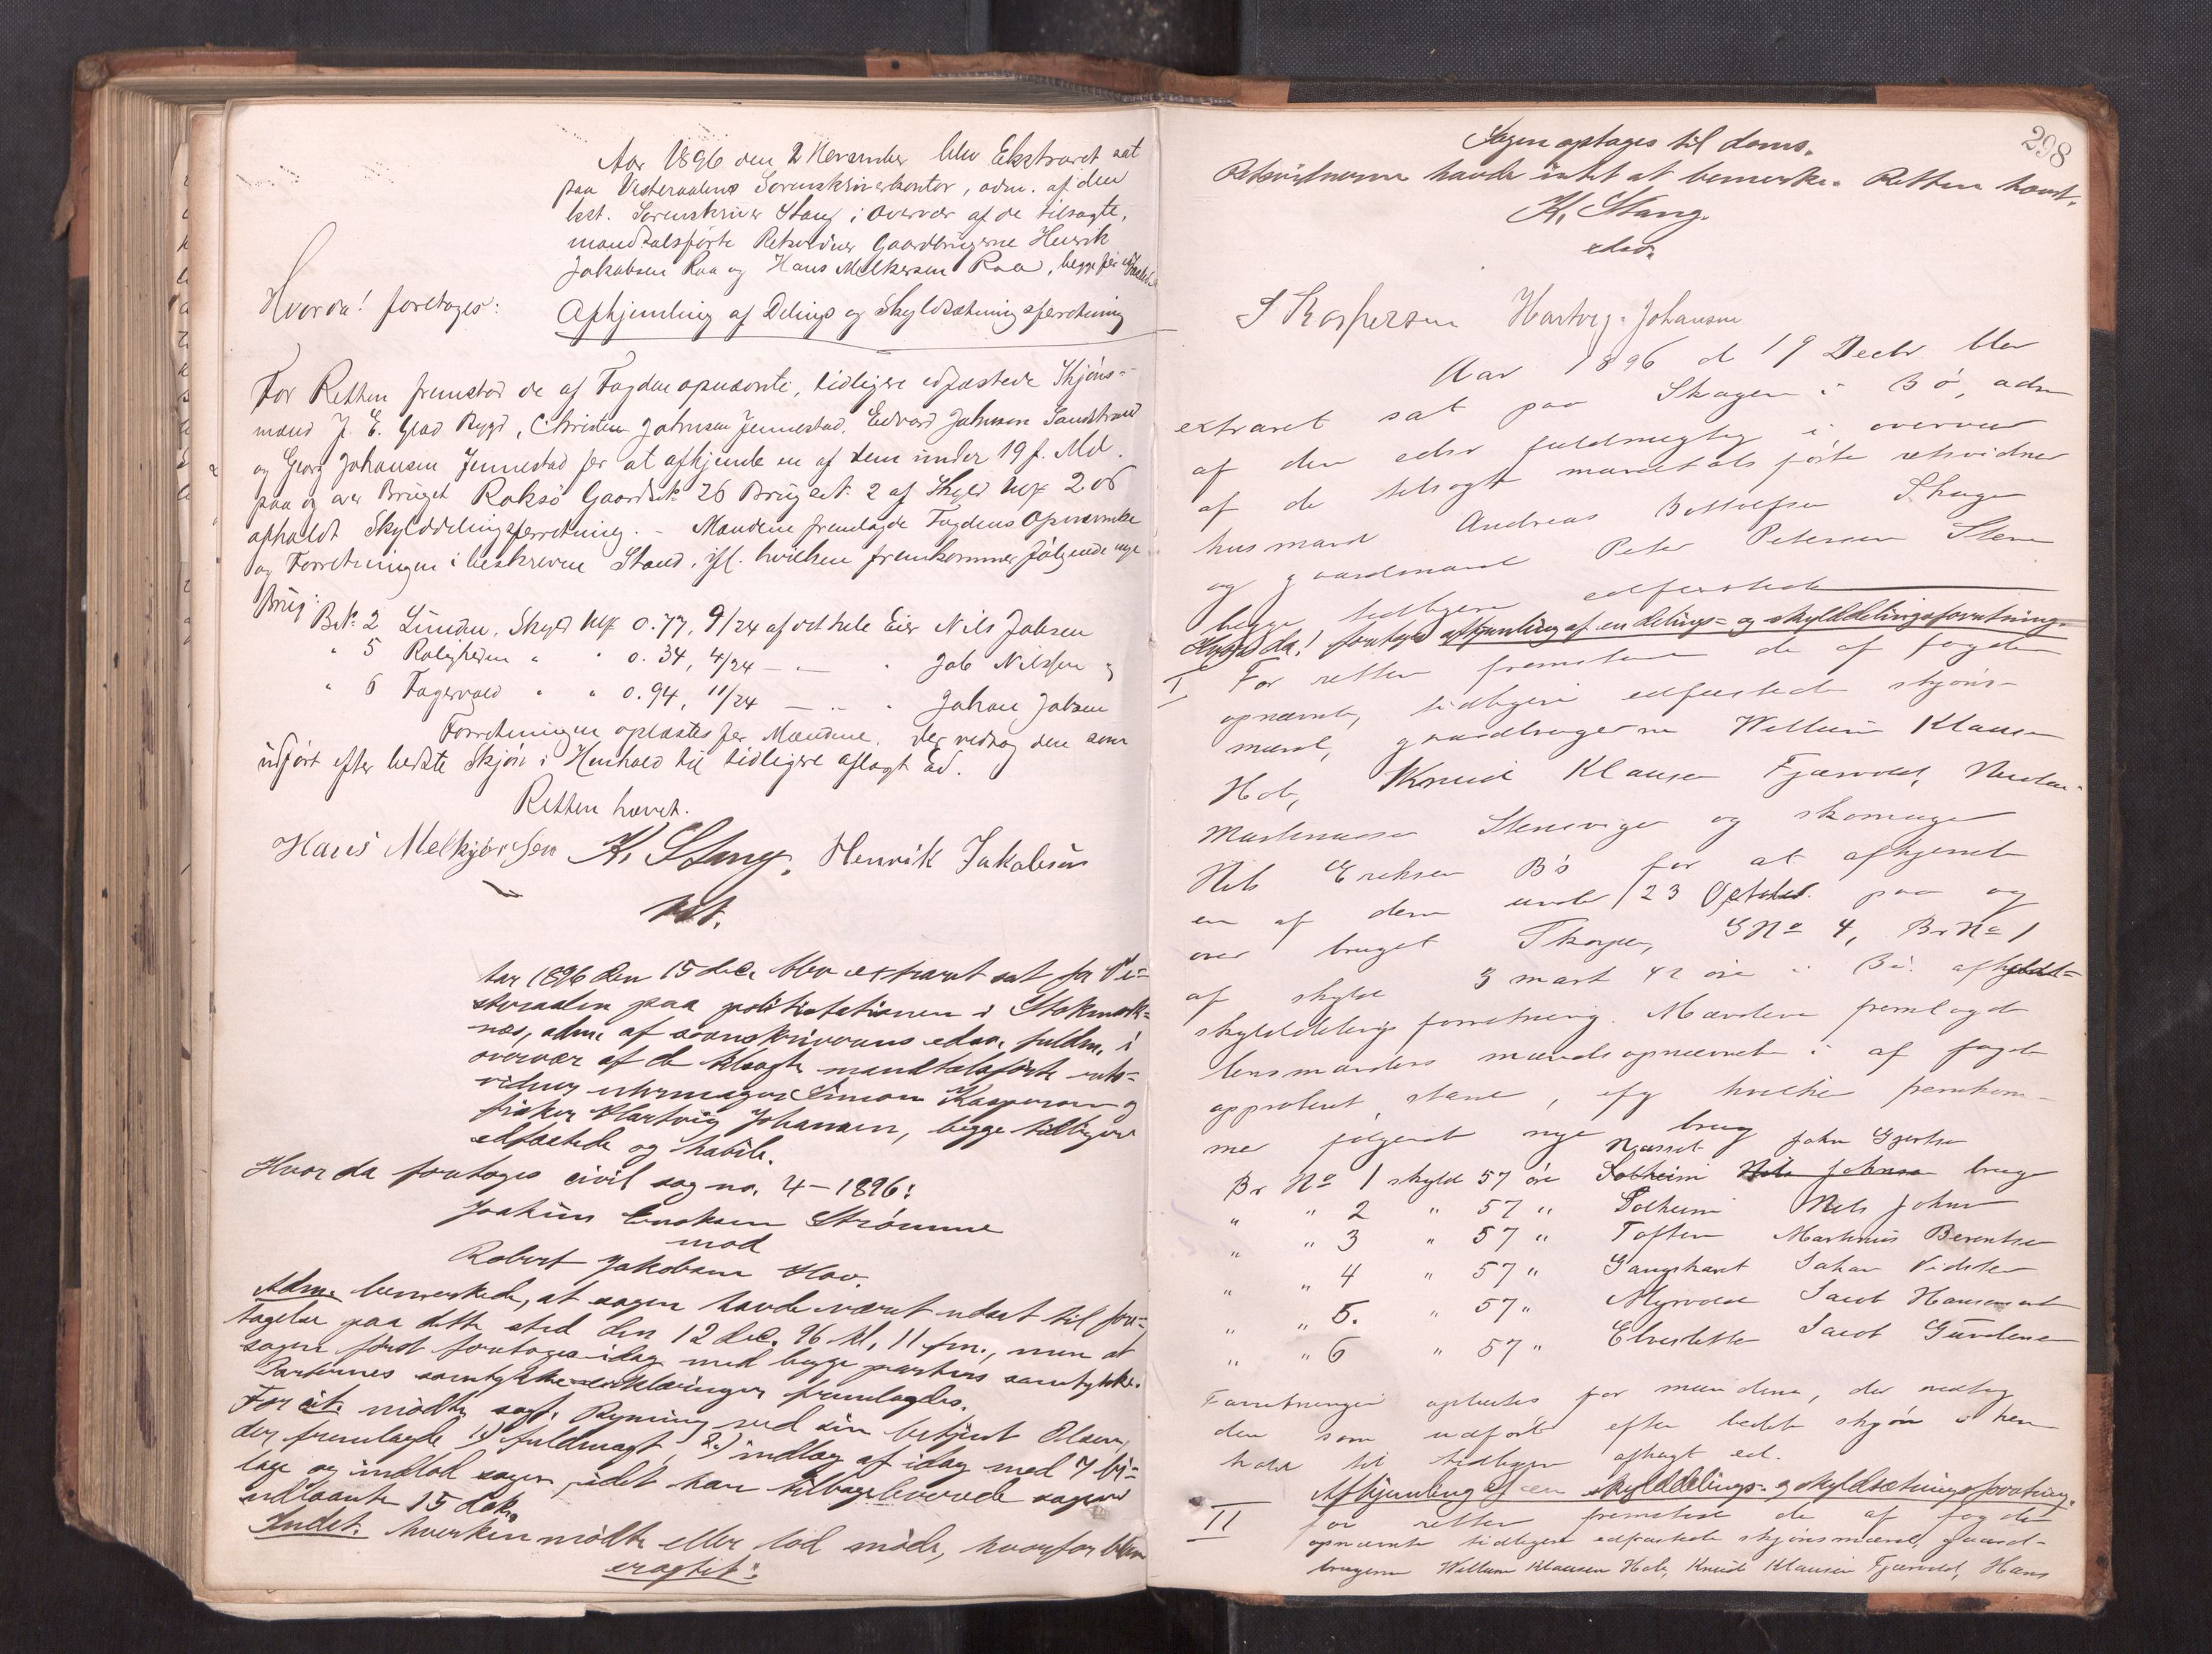 Aar 1896 den 2 November blev Ekstraret sat
paa Vesteraalens Sorenskriverkontor, adm. af den
kst. Sorenskriver Stang i Overvær af de tilsagte,
mandtalsførte Retsvidner Gaardbrugerne Henrik
Jakobsen Raa og Hans Melkersen Raa, begge før
Hvorda! foretoges:
Afhjemling af Delings og Skyldsætningsforretning
For Retten fremstod de af Fogden opnævnte, tidligere edfæstede Skjøns-
mænd J. E. Glad Rygd, Christian Johnsen Jennestad, Edvard Johnson Sandstrand
og Georg Johansen Jennestad for at afhjemle en af dem under 19 f. Md.
paa og over Bruget Roksø Gaardsnt. 26 Brugsnt. 2 af Skyld Mk 2 06
afholdt Skylddelingsforretning. – Mændene fremlagde Fogdens Opnævnelse
og Forretningen i beskreven Stand, ifl. hvilken fremkommer følgende nye
Brug:
B.N. 2 Lunden, Skyld Mk 0.77, 9/24 af det hele Eier Nils Jobsen
" 5 Roligheden " " 0.34, 4/24 — " — " Job Nilssen
" 6 Fagervold " " 0.94, 11/24 — " — " Johan Jobsen
Forretningen oplæstes for Mændene, der vedtog den som
udført efter bedste Skjøn i Henhold til tidligere aflagt Ed.
Retten hævet.
Hans Melkjørsen K. Stang. Henrik Jakobsen
kst.
Aar 1896 den 15 dec. blev extraret sat for Ve-
steraalen paa politistationen i Stokmark-
næs, adm. af sorenskriverens edsv. fuldm. i
overvær af de tilsagte mandtalsførte rets-
vidner uhrmager Simon Kaspersen og
fisker Hartvig Johansen, begge tidligere
edfæstede og habile.
Hvor da foretoges civil sag no. 4 – 1896:
Joakim Enoksen Strømme
mod
Robert Jakobsen Hov.
Adm. bemerkede, at sagen havde været udsat til fore-
tagelse paa dette sted den 12 dec. 96 kl. 11 fm., men at
sagen først foretoges idag med begge parters samtykke.
Parternes samtykkeerklæringer fremlagdes.
For cit. mødte sagf. Rynning ved sin betjent Olsen,
der fremlagde 1) fuldmagt, 2) indlæg af idag med 7 bi-
lage og indlod sagen, idet han tilbageleverede sagens
udlaante 15 dok.
Indst. hverken mødte eller lod møde, hvorfor blev
eragtet:
298
Sagen optages til doms.
Retsvidnerne havde intet at bemerke. Retten hævet.
K. Stang.
edsv.
S Kaspersen Hartvig Johansen
Aar 1896 d 19 Decbr blev
extraret sat paa Skagen i Bø, adm
af den edsv fuldmegtig i overvær
af de tilsagt mandtalsførte retsvidner
husmand Andreas Bottolfsen Skagen
og gaardmand Peter Petersen Steen
begge tidligere edfæstede
Hvor da! foretoges afhjemling af en delings- og skylddelingsforretning.
I For retten fremstod de af fogden
opnævnte, tidligere edfæstede skjøns-
mænd, gaardbrugerne Willum Klausen
Hob, Knud Klausen Fjærvold,
Martinussen Stenevigen og skomager
Nils Eriksen Bø for at afhjemle
en af dem under 23 October paa og
over bruget GNo 4, BrNo 1
af skyld 3 mark 42 øre i Bø afholdt
skylddelings forretning. Mændene fremlagde
lensmandens mandsopnævnelse i af fogden
approberet stand, ifg hvilken fremkom-
mer følgende nye brug
Br No 1 skyld 57 øre Næsset John Gjertsen bruger
" " 2 " 57 " Solheim Nils Johnsen
" " 3 " 57 " Toften Martinus Berentsen
" " 4 " 57 " Johan Vidsten
" " 5. " 57 " Myrvold Jacob Hansen
" " 6 " 57 " Elvesletten Jacob
Forretningen oplæstes for mændene, der vedtog
den som udført efter bedste skjøn i hen
hold til tidligere aflagt ed.
Afhjemling af en skylddelings- og skyldsætningsforretning.
II For retten fremstod de af fogden
opnævnte tidligere edfæstede skjønsmænd, gaard-
brugerne Willum Klausen Hob, Knud Klausen Fjærvold, Hans